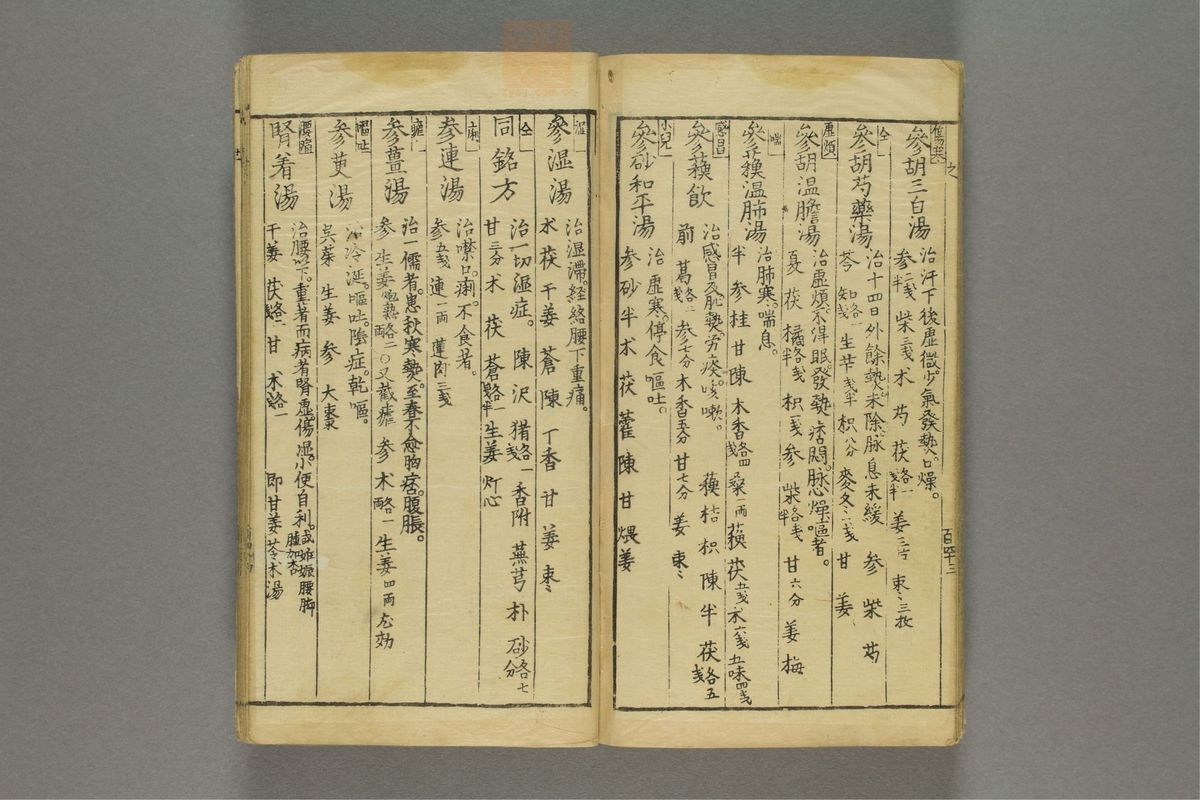 傷寒
參胡三白湯
治汗下後虛微少氣發熱口燥。
參二戔半 柴三戔 术 芍 茯各一戔半 姜三片 枣三枚
仝
參胡芍藥湯
治十四日外餘熱未除脉息未緩 參 柴 芍
芩 知各一 生苄戔半 枳八分 麥冬六戔 甘 姜
虛煩
參胡温膽湯
治虛煩。不得眠。發熱痞悶。脉燥嘔者。
夏 茯 橘各戔 枳一戔 參 柴各戔半 甘六分 姜 梅
喘
參蘓温肺湯
治肺寒。喘息。
半 參 桂 甘 陳 木香各四戔 桑一兩 蘓 茯五戔 术六戔 五味四戔
感冒
參蘓飲
治感冒及恥熱。労痰。咳嗽。 蘓 桔 枳 陳 半 茯各五戔
前 葛各一戔 參七分 木香五分 甘七分 姜 枣
小兒
參砂和平湯
治虛寒。停食嘔吐。
參 砂 半 术 茯 藿 陳 甘 煨姜
百四十三
湿
參湿湯
治湿滯。経絡腰下重痛。
术 茯 干姜 蒼 陳 丁香 甘 姜 枣
仝
同銘方
治一切湿症。 陳 沢 猪各一戔 香附 蕪 芎 朴 砂各七分
甘三分 术 茯 蒼各一戔半 生姜 灯心
痢
參連湯
治噤口。痢。不食者。
參五戔 連一両 蓮肉三戔
瘧
參薑湯
治一儒者。患秋寒熱。至春不愈胸痞。腹脹。
參 生姜煨熟各二両 ○又截瘧 參 术各一両 生姜四両 尤効
嘔吐
參萸湯
治冷涎。嘔吐。陰症。乾嘔。
吳茱 生姜 參 大枣
腰湿
腎着湯
治腰以下。重者而病者腎虛。傷湿。小便自利。或妊娠腰脚腫加杏
干姜 茯各二戔 甘 术各一 即甘姜苓术湯